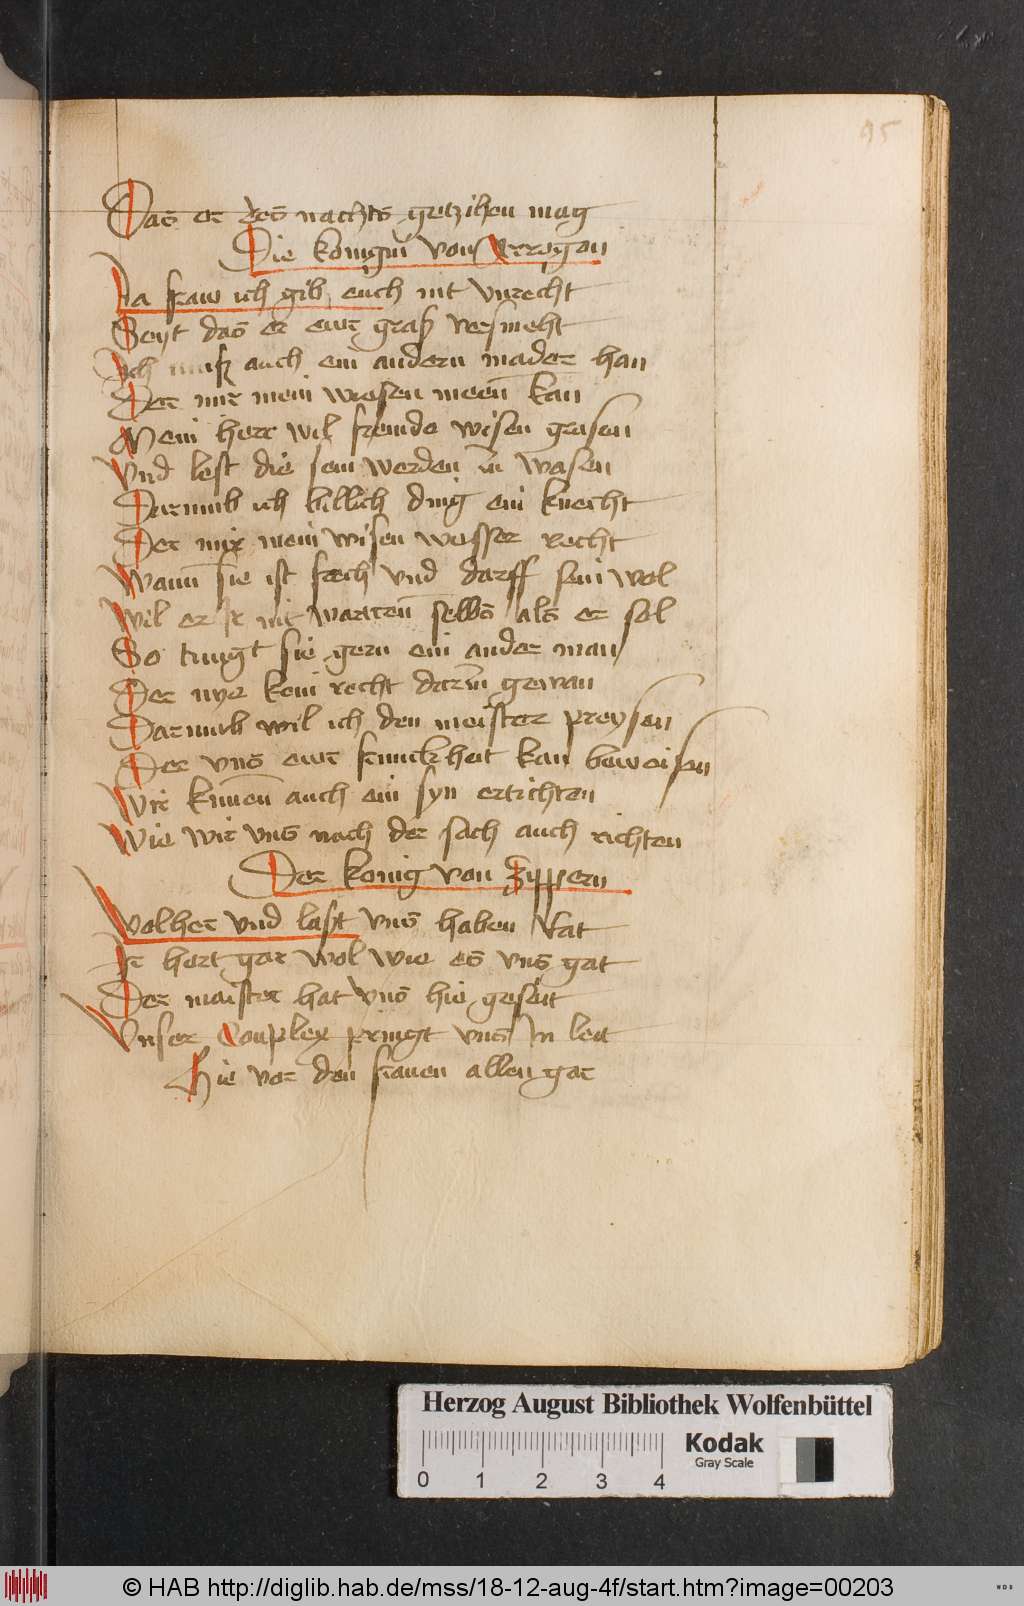 95
Das er des nachts getzihen mag
Die konigin von Arrogon
Ja fraw ich gib euch nit vnrecht
Seyt das er ewr graß versmeht
Ich muß auch ein andern mader han
Der mir mein wiesen meen kan
Mein herr wil fremde wisen grasen
Vnd lest die sein werden in wasen
Darumb ich billich ding ein knecht
Der mir mein wisen wesser recht
Wann sie ist frech vnd darff sein wol
Wil er ir nit wartten selbs als er sol
So tungt sie gern ein ander man
Der nye kein recht darin gewan
Darumb wil ich den meister preysen
Der vns ewr krumckheit kan beweisen
Wir kunnen auch ein syn ertichten
Wie wir vns nach der sach auch richten
Der konig von Zippern
Wolher vnd last vns haben Rat
Ir hort gar wol wie es vns gat
Der maister hat vns hie geseit
Vnser Conplex pringt vns In leit
Hie vor den frauen allen gar
Herzog August Bibliothek Wolfenbüttel
Kodak
Gray Scale
0 1 2 3 4
© HAB http://diglib.hab.de/mss/18-12-aug-4f/start.htm?image=00203
WDB